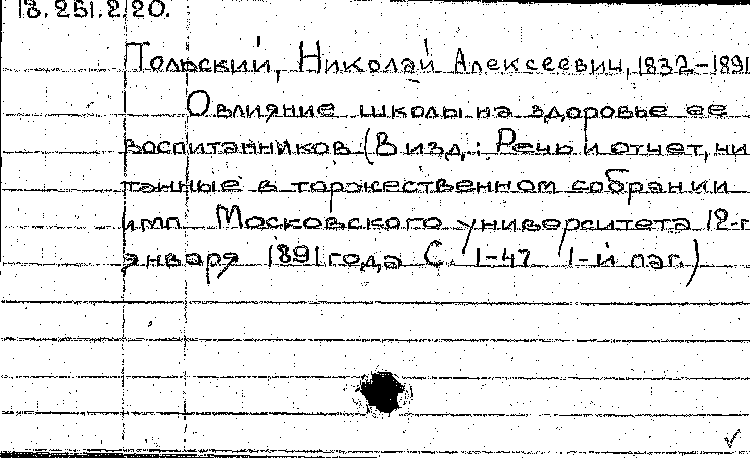 18.251.2.20.
Тольский, Николай Алексеевич, 1832-1891
О влияние школы на здоровье ее
воспитанников (В изд.: Речь и отчет, чи
танные в торжественном собрании
имп Московского университета 12-г
января 1891 года С. 1-47 1-й паг.)